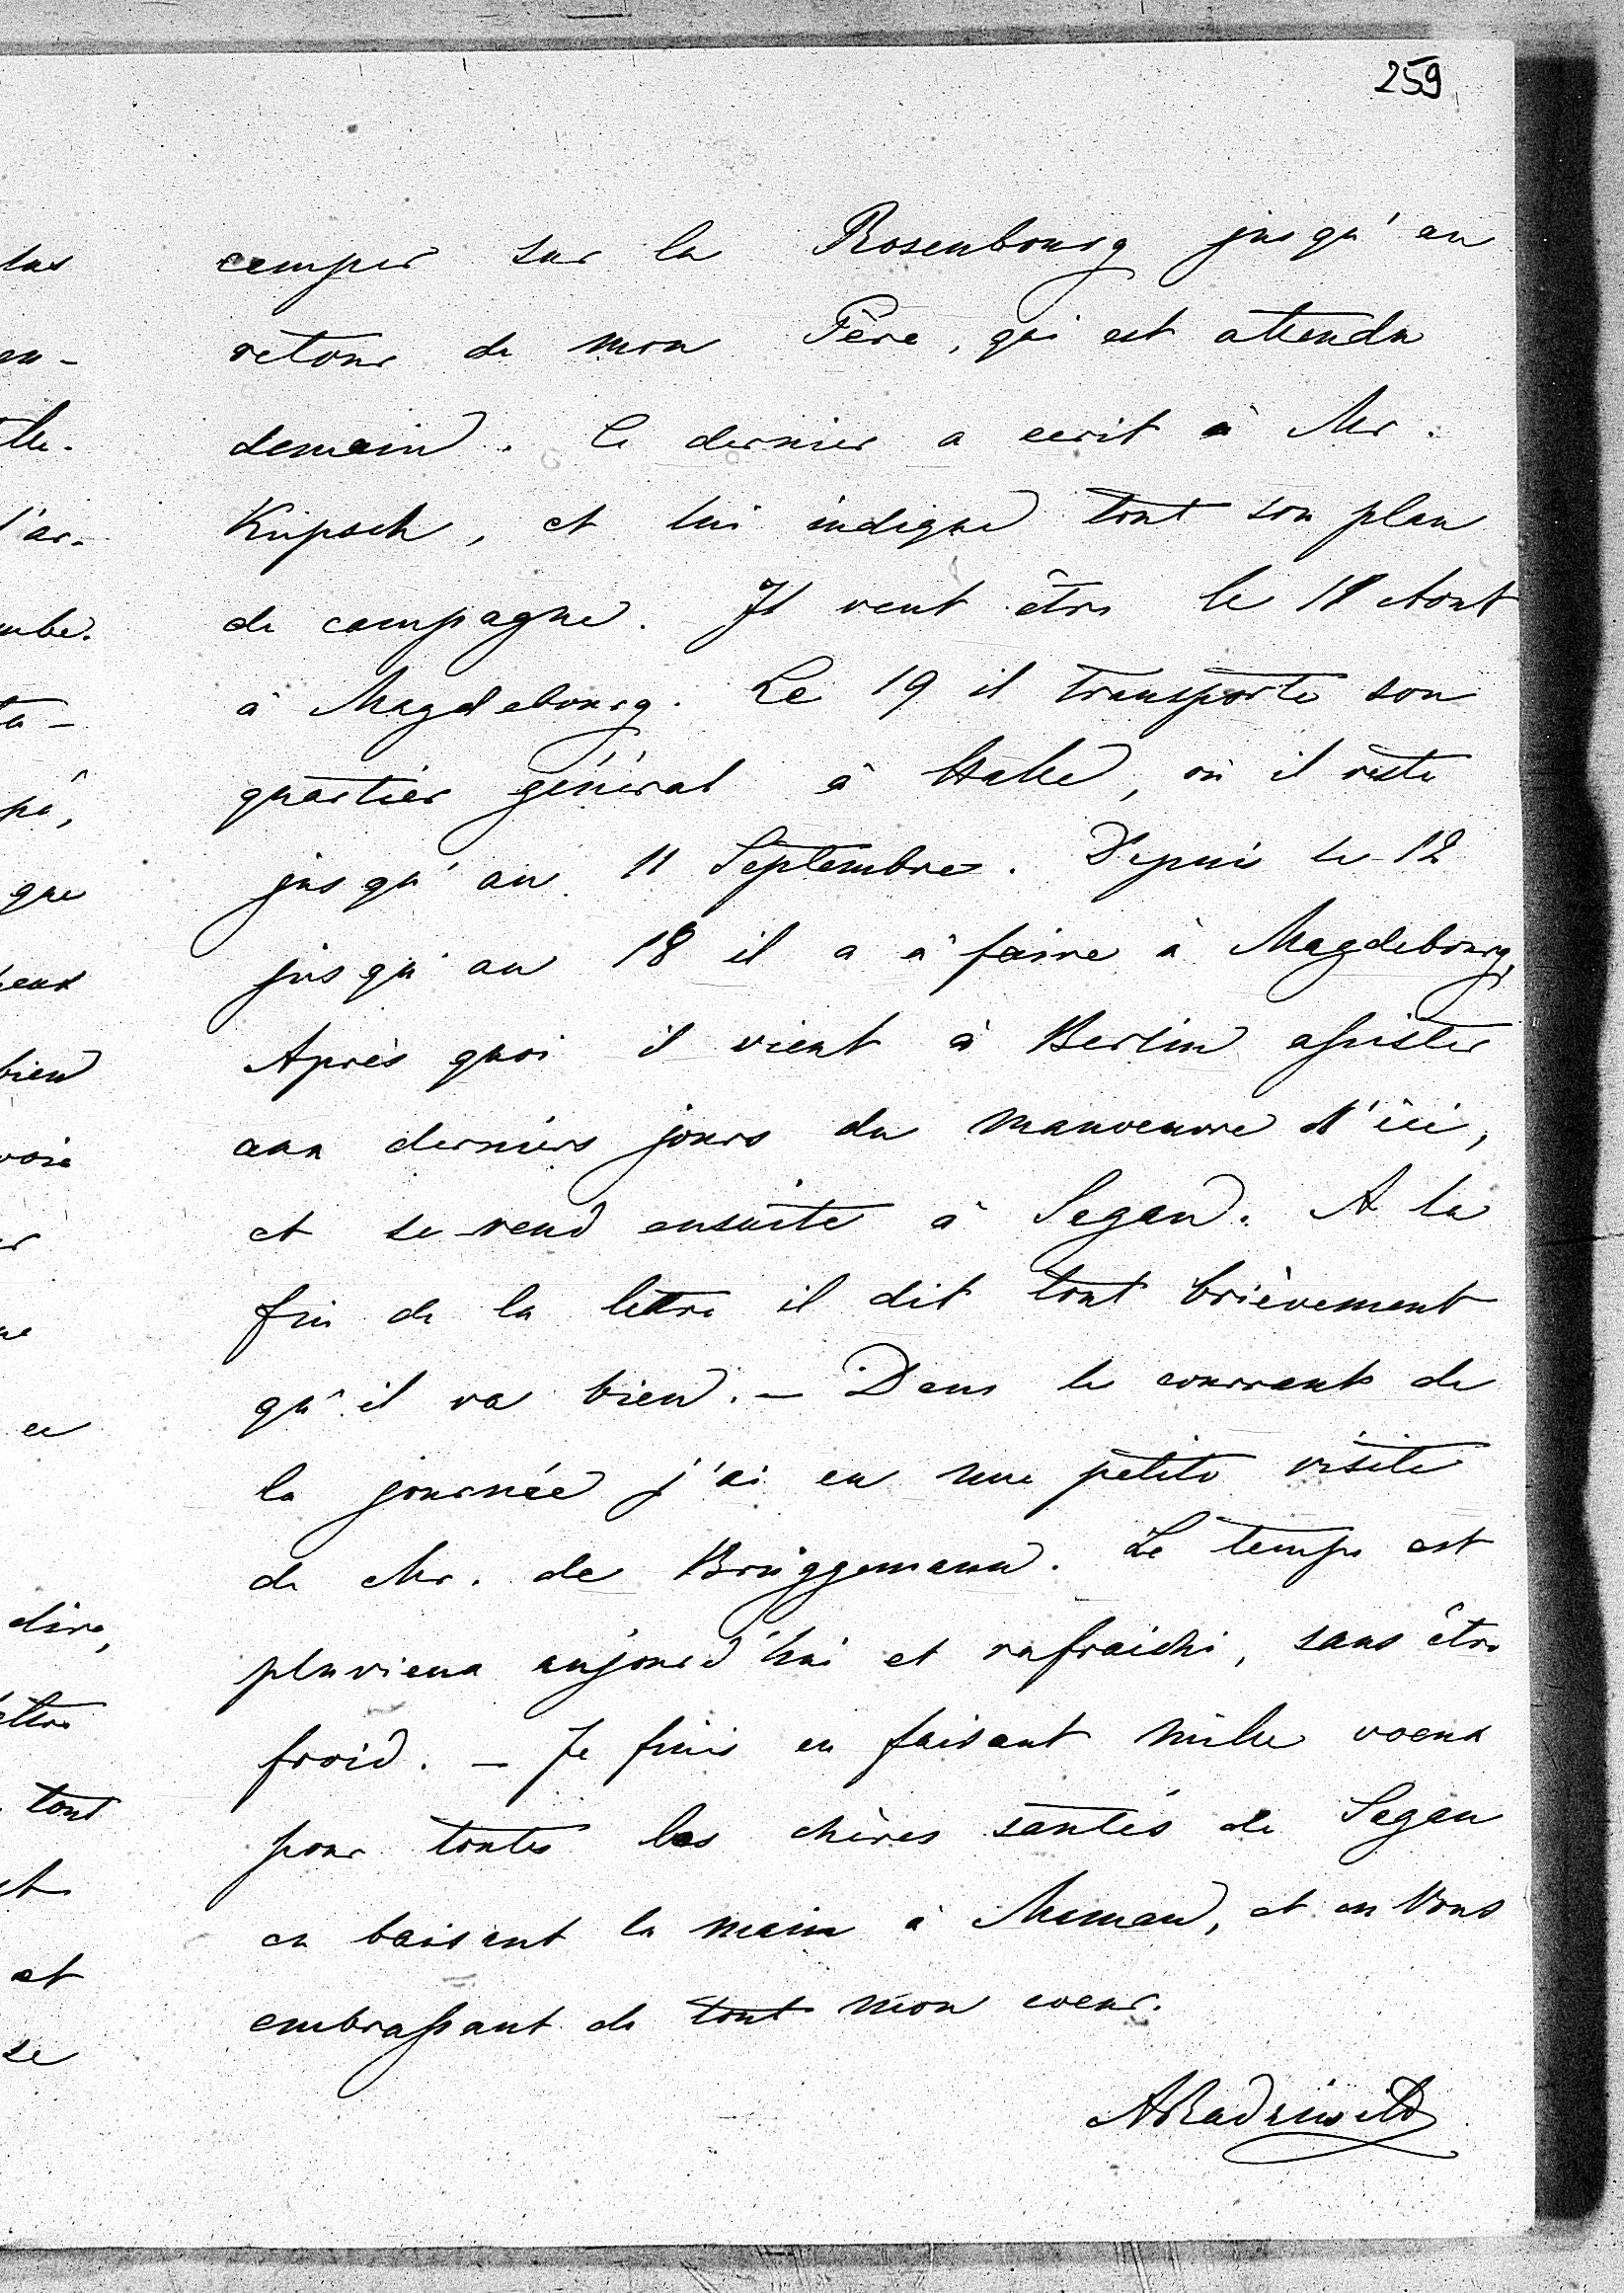 259
camper sur la Rosenbourg jusqu'au
retour de mon Père, qui est attendu
demain. Ce dernier a ecrit à Mr.
Kripsch, et lui indique tout son plan
de campagne. Il veut être le 18 Aout
à Magdebourg. Le 19 il transporte son
quartier général à Halle, où il reste
jusqu'au 11 Septembre. Depuis le 12
jusqu'au 18 il a à faire à Magdebourg,
Après quoi il vient à Berlin assister
aux derniers jours du manoeuvre d'ici,
et se rend ensuite à Sagan. A la
fin de la lettre il dit tout brièvement
qu'il va bien. — Dans le courrant de
la journée j'ai eu une petite visite
de Mr. de Brüggemann. Le temps est
pluvieux aujourd'hui et rafraichi, sans être
froid. — Je finis en faisant mille voeux
pour toutes les chères santés de Sagan
en baisant la main à Maman, et en Vous
embrassant de tout mon coeur.
ARadziwill